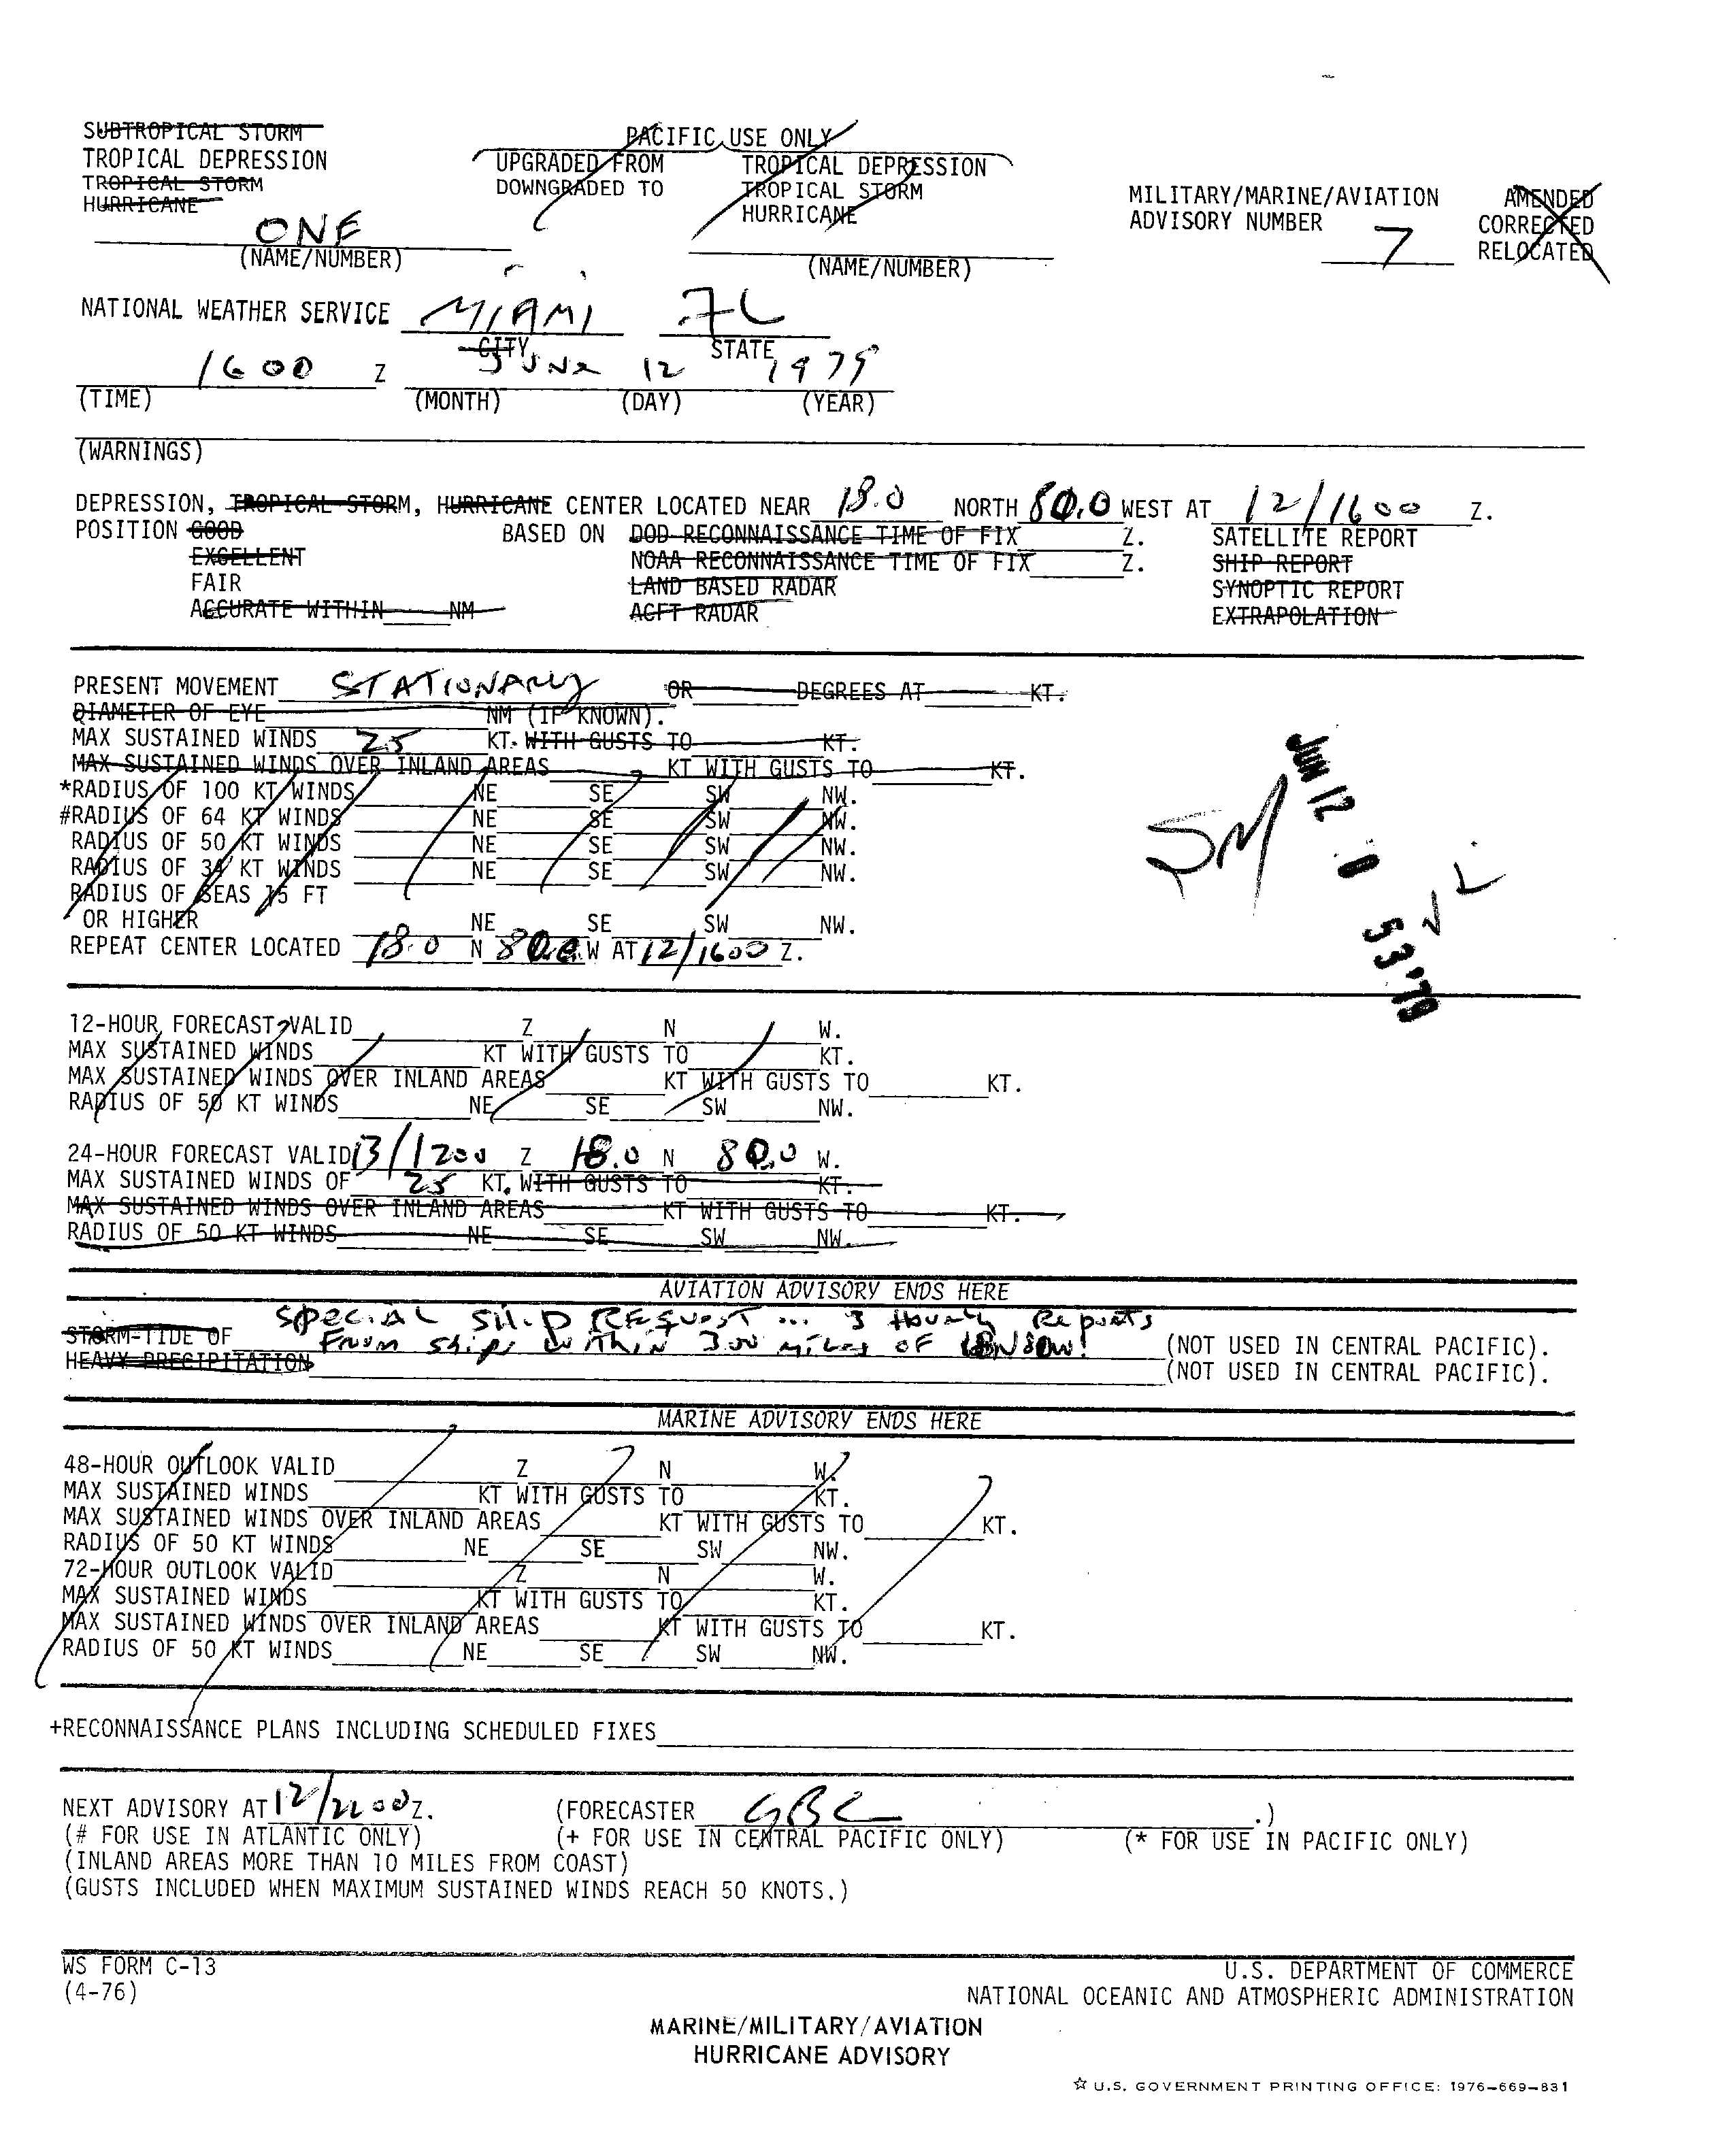 SUBTROPICAL STORM
TROPICAL DEPRESSION
TROPICAL STORM
HURRICANE
ONE
(NAME/NUMBER)
PACIFIC USE ONLY
UPGRADED FROM TROPICAL DEPRESSION
DOWNGRADED TO TROPICAL STORM
HURRICANE
(NAME/NUMBER)
MILITARY/MARINE/AVIATION AMENDED
ADVISORY NUMBER 7 CORRECTED
RELOCATED
NATIONAL WEATHER SERVICE MIAMI FL
CITY STATE
1600 Z JUNE 12 1979
(TIME) (MONTH) (DAY) (YEAR)
(WARNINGS)
DEPRESSION, TROPICAL STORM, HURRICANE CENTER LOCATED NEAR 18.0 NORTH 80.0 WEST AT 12/1600 Z.
POSITION GOOD BASED ON DOD RECONNAISSANCE TIME OF FIX Z. SATELLITE REPORT
EXCELLENT NOAA RECONNAISSANCE TIME OF FIX Z. SHIP REPORT
FAIR LAND BASED RADAR SYNOPTIC REPORT
ACCURATE WITHIN NM ACFT RADAR EXTRAPOLATION
PRESENT MOVEMENT STATIONARY OR DEGREES AT KT.
DIAMETER OF EYE NM (IF KNOWN).
MAX SUSTAINED WINDS 25 KT. WITH GUSTS TO KT.
MAX SUSTAINED WINDS OVER INLAND AREAS KT WITH GUSTS TO KT.
*RADIUS OF 100 KT WINDS NE SE SW NW.
#RADIUS OF 64 KT WINDS NE SE SW NW.
RADIUS OF 50 KT WINDS NE SE SW NW.
RADIUS OF 34 KT WINDS NE SE SW NW.
RADIUS OF SEAS 15 FT
OR HIGHER NE SE SW NW.
REPEAT CENTER LOCATED 18.0 N 80.0 W AT 12/1600 Z.
JM
JUN 12 53 '79
12-HOUR FORECAST VALID Z N W.
MAX SUSTAINED WINDS KT WITH GUSTS TO KT.
MAX SUSTAINED WINDS OVER INLAND AREAS KT WITH GUSTS TO KT.
RADIUS OF 50 KT WINDS NE SE SW NW.
24-HOUR FORECAST VALID 13/1200 Z 18.0 N 80.0 W.
MAX SUSTAINED WINDS OF 25 KT. WITH GUSTS TO KT.
MAX SUSTAINED WINDS OVER INLAND AREAS KT WITH GUSTS TO KT.
RADIUS OF 50 KT WINDS NE SE SW NW.
AVIATION ADVISORY ENDS HERE
SPECIAL SHIP REQUEST ... 3 Hourly Reports
STORM-TIDE OF From ships within 300 miles of 18N 80W! (NOT USED IN CENTRAL PACIFIC).
HEAVY PRECIPITATION (NOT USED IN CENTRAL PACIFIC).
MARINE ADVISORY ENDS HERE
48-HOUR OUTLOOK VALID Z N W.
MAX SUSTAINED WINDS KT WITH GUSTS TO KT.
MAX SUSTAINED WINDS OVER INLAND AREAS KT WITH GUSTS TO KT.
RADIUS OF 50 KT WINDS NE SE SW NW.
72-HOUR OUTLOOK VALID Z N W.
MAX SUSTAINED WINDS KT WITH GUSTS TO KT.
MAX SUSTAINED WINDS OVER INLAND AREAS KT WITH GUSTS TO KT.
RADIUS OF 50 KT WINDS NE SE SW NW.
+RECONNAISSANCE PLANS INCLUDING SCHEDULED FIXES
NEXT ADVISORY AT 12/2200 Z. (FORECASTER GBC .)
(# FOR USE IN ATLANTIC ONLY) (+ FOR USE IN CENTRAL PACIFIC ONLY) (* FOR USE IN PACIFIC ONLY)
(INLAND AREAS MORE THAN 10 MILES FROM COAST)
(GUSTS INCLUDED WHEN MAXIMUM SUSTAINED WINDS REACH 50 KNOTS.)
WS FORM C-13 U.S. DEPARTMENT OF COMMERCE
(4-76) NATIONAL OCEANIC AND ATMOSPHERIC ADMINISTRATION
MARINE/MILITARY/AVIATION
HURRICANE ADVISORY
☆ U.S. GOVERNMENT PRINTING OFFICE: 1976-669-831